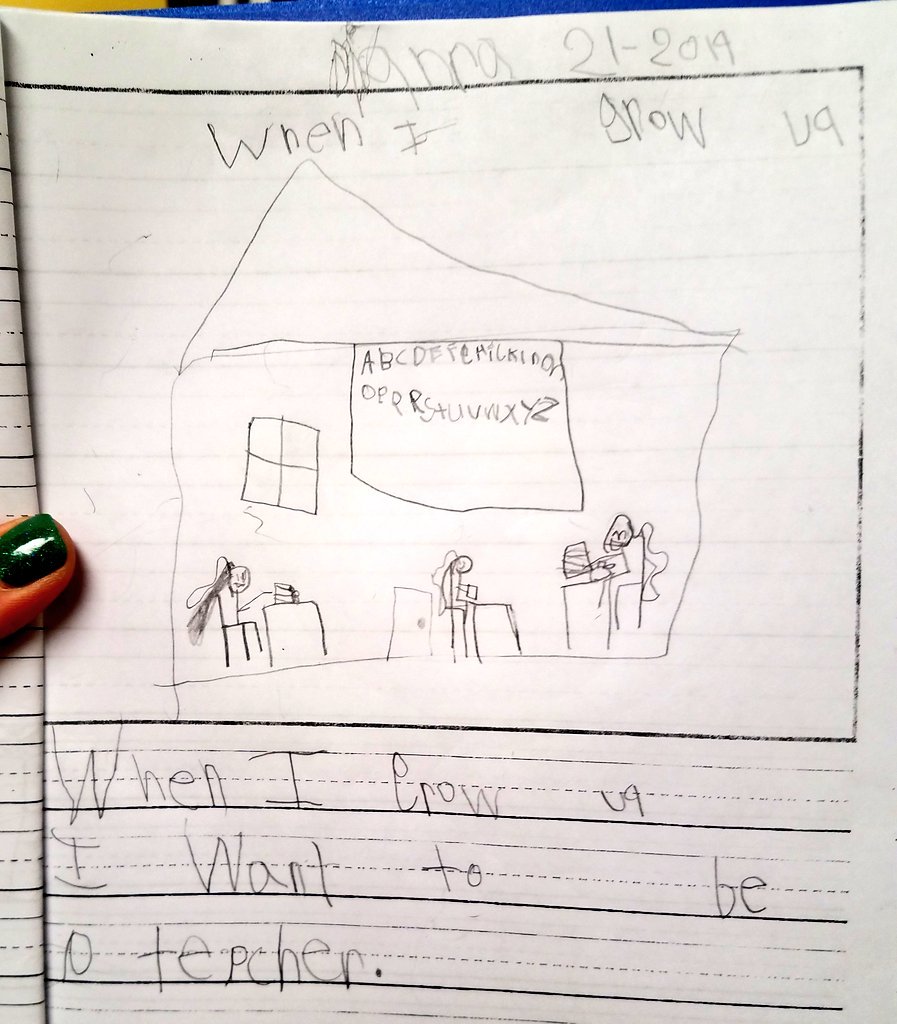 21-2019
When I grow uq
ABCDEFGHIJKLMNO
OPPRStUVWXYZ
When I Grow uq
I Want to be
a teacher.